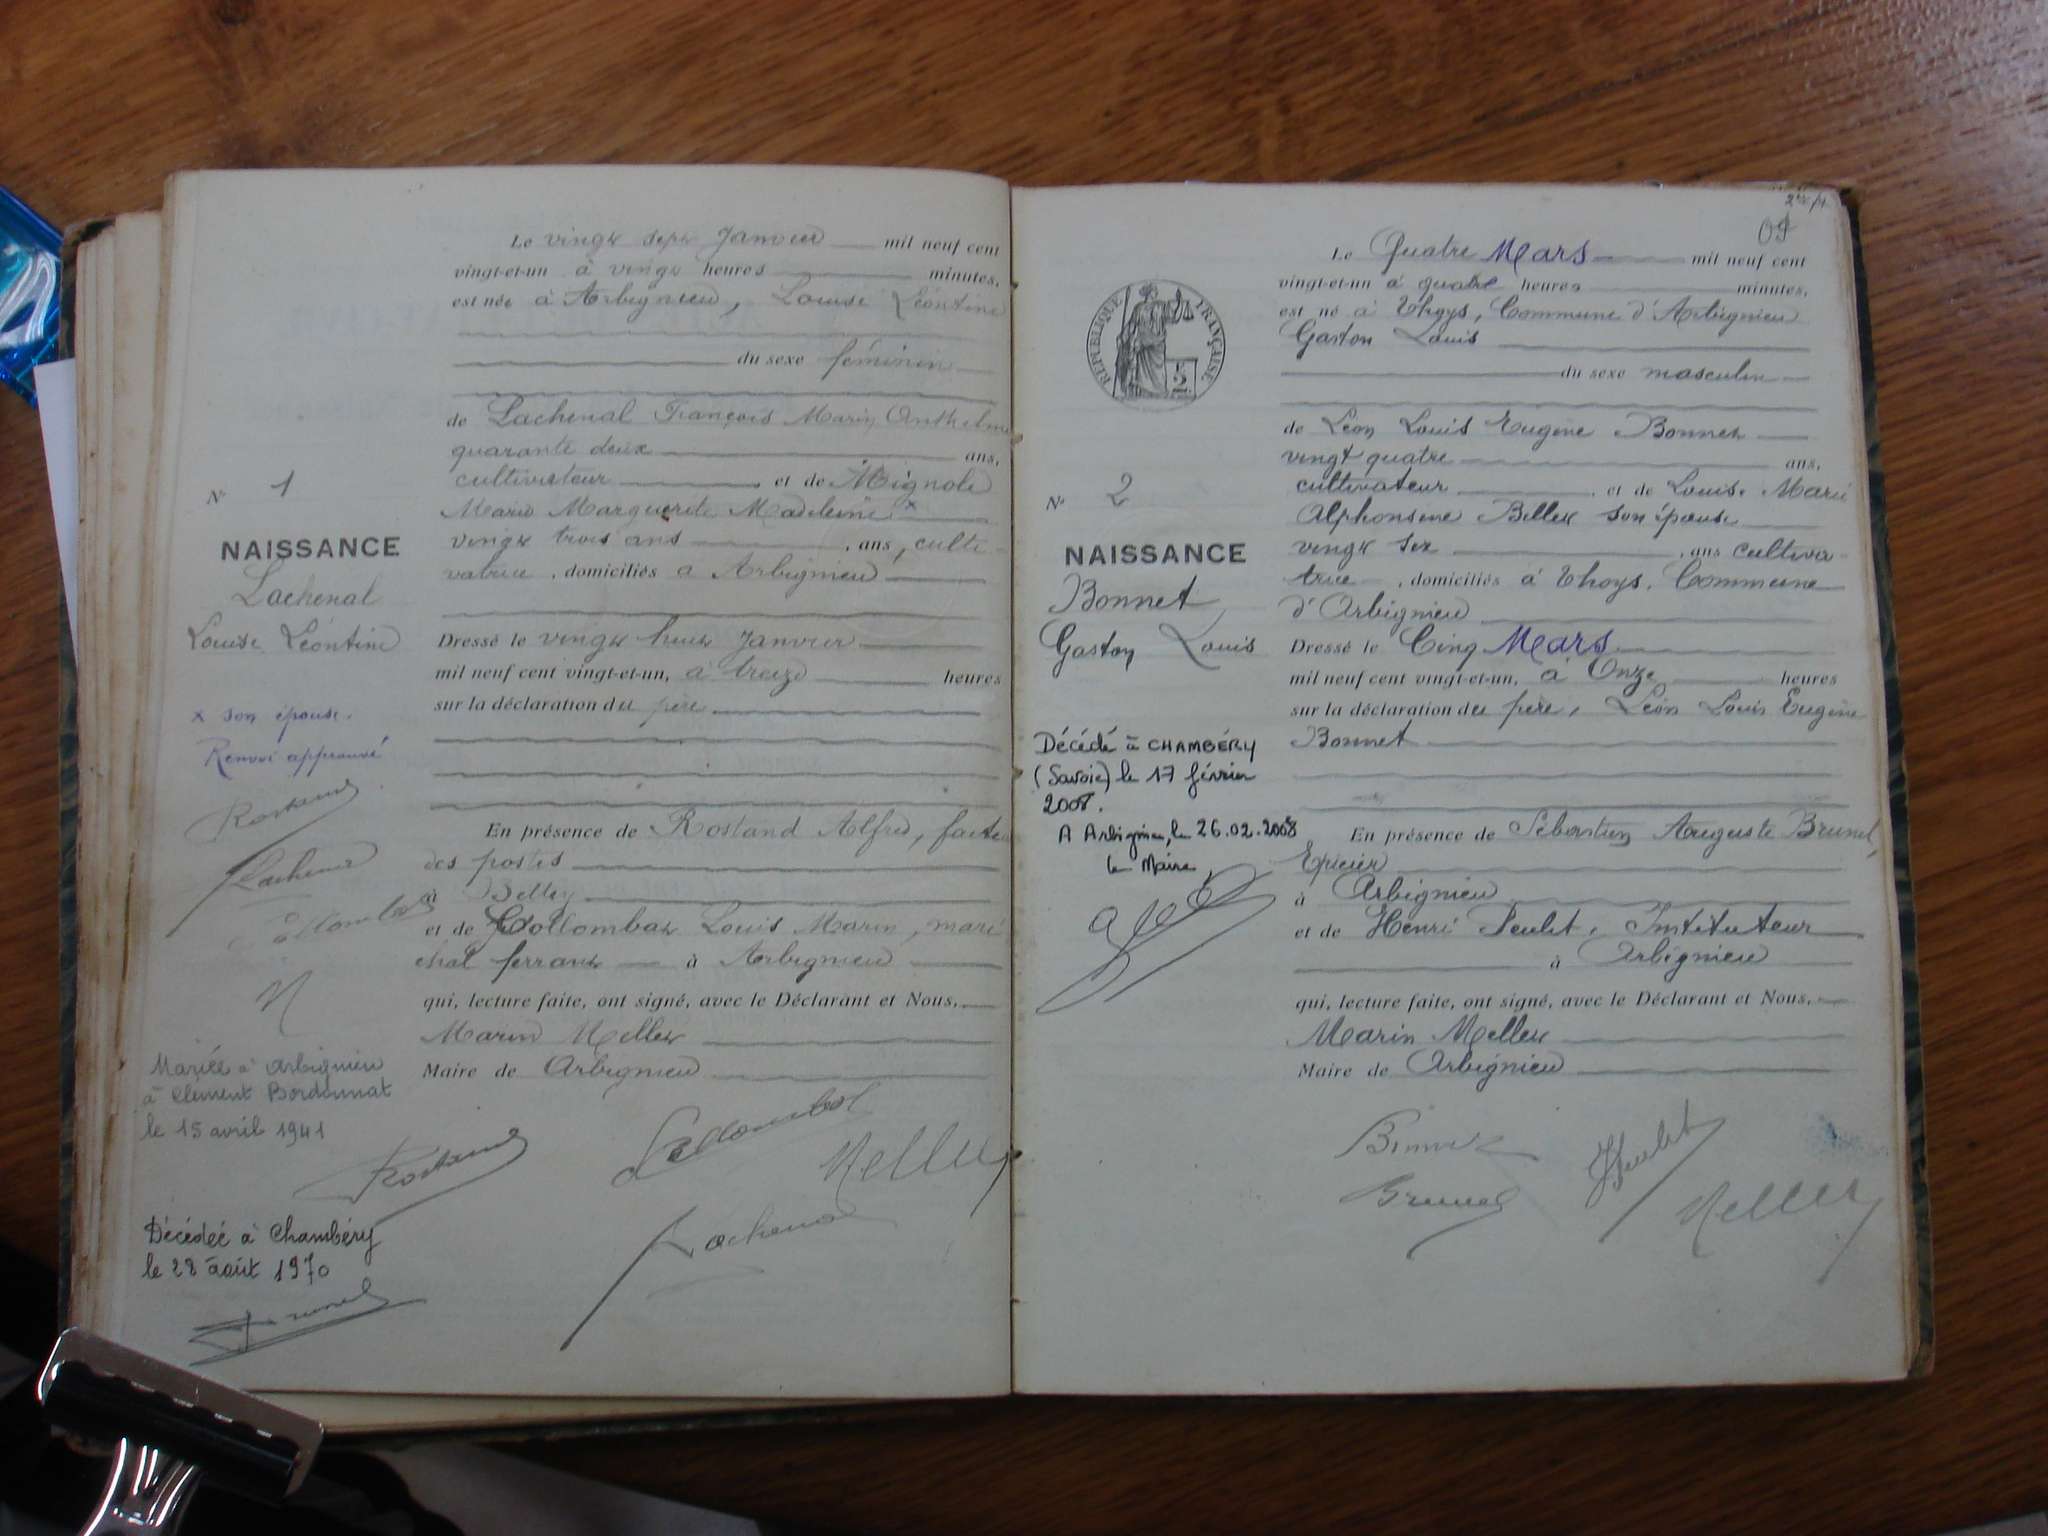 Le vingt sept Janvier mil neuf cent
vingt-et-un à vingt heures minutes,
est née à Arbignieu, Louise Léontine
du sexe féminin
de Lachenal François Marin Anthelme
quarante deux ans,
cultivateur et de Mignole
Marie Marguerite Madeleine x
vingt trois ans , ans, culti-
vatrice , domiciliés à Arbignieu
Dressé le vingt huit Janvier
mil neuf cent vingt-et-un, à treize heures
sur la déclaration du père
En présence de Rostand Alfred, facteur
des postes
à Belley
et de Collombat Louis Marin, maré
chal ferrant à Arbignieu
qui, lecture faite, ont signé, avec le Déclarant et Nous,
Marin Mellet
Maire de Arbignieu
Nº 1
NAISSANCE
Lachenal
Louise Léontine
x son épouse.
Renvoi approuvé
Rostand
Lachenal
Collombat
M
Mariée à Arbignieu
à Clément Bordonnat
le 15 avril 1941
Décédée à Chambéry
le 28 août 1970
Rostand
Collombat
Mellet
Lachenal
09
Le Quatre Mars mil neuf cent
vingt-et-un à quatre heures minutes,
est né à Thoys, Commune d'Arbignieu
Gaston Louis
du sexe masculin
de Léon Louis Eugène Bonnet
vingt quatre ans,
cultivateur , et de Louise Marie
Alphonsine Billet son épouse
vingt six , ans cultiva-
trice , domiciliés à Thoys, Commune
d'Arbignieu
Dressé le Cinq Mars
mil neuf cent vingt-et-un, à Onze heures
sur la déclaration du père, Léon Louis Eugène
Bonnet
En présence de Sébastien Auguste Brunel,
Epicier
à Arbignieu
et de Henri Peulet, Instituteur
à Arbignieu
qui, lecture faite, ont signé, avec le Déclarant et Nous,
Marin Mellet
Maire de Arbignieu
RÉPUBLIQUE FRANÇAISE
Nº 2
NAISSANCE
Bonnet
Gaston Louis
Décédé à CHAMBÉRY
(Savoie) le 17 février
2008.
A Arbignieu, le 26.02.2008
le Maire
Bonnet
Brunel
Mellet